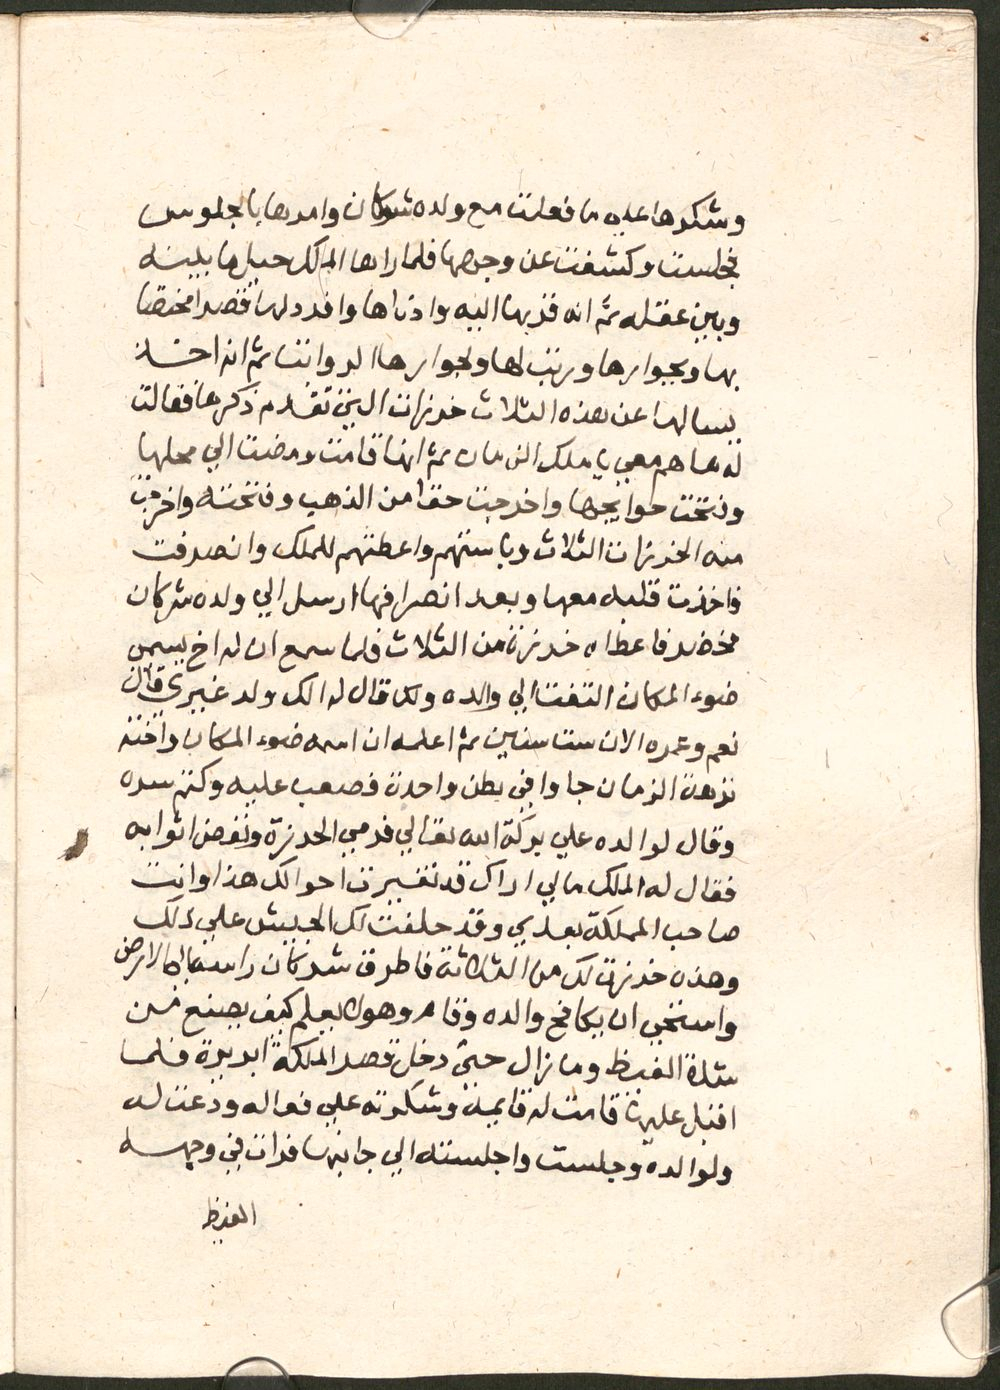 وشكرها علي ما فعلت مع ولده شركان وامرها بالجلوس
فجلست وكشفت عن وجهها فلما راها الملك حيل ما بينه
وبين عقله ثم انه قربها اليه وادناها وافرد لها قصرا مختصا
بها وبجوارها ورتب لها ولجوارها الرواتب ثم انه اخذ
يسالها عن هذه الثلاث خرزات الذي تقدم ذكرها فقالت
له ها هم معي يا ملك الزمان ثم انها قامت ومضت الي محلها
وفتحت حوايجها واخرجت حقا من الذهب وفتحته واخرجت
منه الخرزات الثلاث وباستهم واعطتهم للملك وانصرفت
فاخذت قلبه معها وبعد انصرافها ارسل الي ولده شركان
فحضر فاعطاه خرزة من الثلاث فلما سمع ان له اخ يسمي
ضوء المكان التفت الي والده وقال له الك ولد غيري قال
نعم وعمره الان ست سنين ثم اعلمه ان اسمه ضوء المكان واخته
نزهة الزمان جاوا في بطن واحدة فصعب عليه وكتم سره
وقال لوالده علي بركة الله تعالي فرمي الخرزة ونفض اثوابه
فقال له الملك مالي اراك قد تغيرت احوالك هذا وانت
صاحب المملكة بعدي وقد حلفت لك الجيش علي ذلك
وهذه خرزة لك من الثلاثة فاطرق شركان راسه الي الارض
واستحي ان يكافح والده وقام وهو لا يعلم كيف يصنع من
شدة الغيظ وما زال حتي دخل قصر الملكة ابريزة فلما
اقبل عليها قامت له قايمة وشكرته علي فعاله ودعت له
ولوالده وجلست واجلسته الي جانبها فرات في وجهه
الغيظ